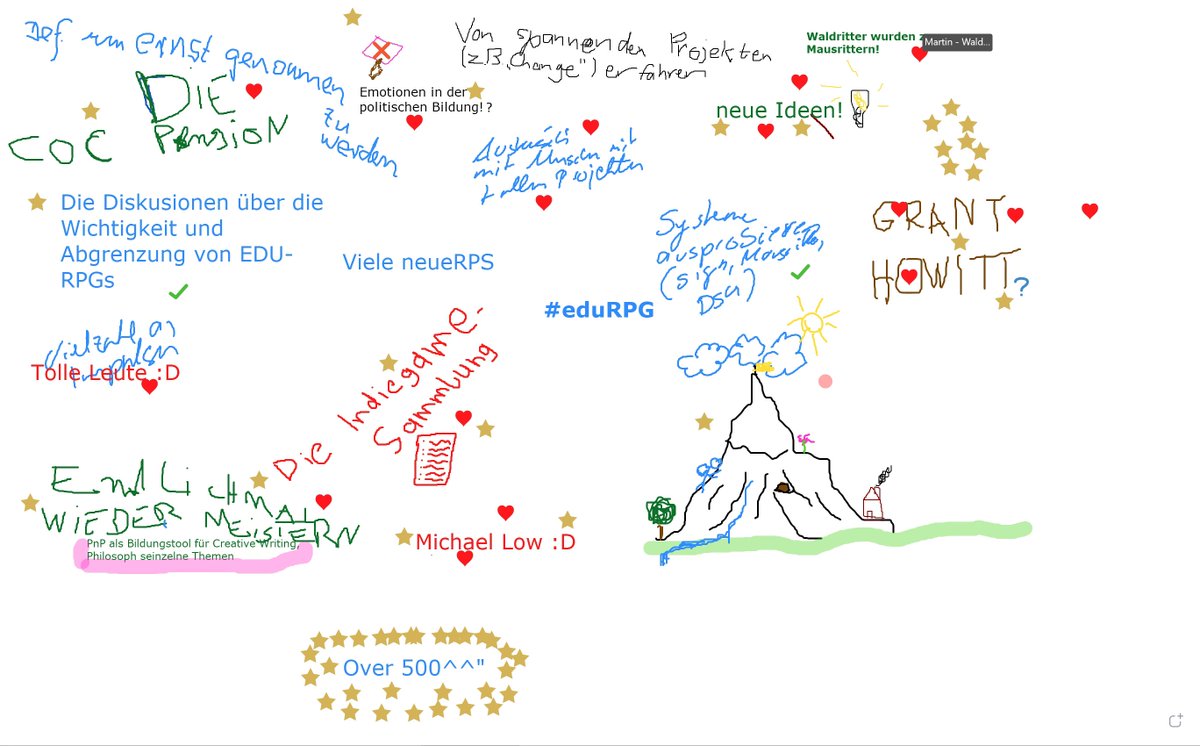 Def. um ernst genommen
zu
werden
DIE
PENSION
COC
Emotionen in der
politischen Bildung!?
Von spannenden Projekten
(z.B. "Change") erfahren
Waldritter wurden z
Mausrittern!
Martin - Wald...
neue Ideen!
mit
mit
tollen Projekten
Die Diskusionen über die
Wichtigkeit und
Abgrenzung von EDU-
RPGs
Viele neueRPS
Systeme
ausprobieren
DSA)
#eduRPG
GRANT
HOWITT?
Vielzahl an
Impulsen
Tolle Leute :D
Die Indiegame-
Sammlung
EndLiCHMAL
WIEDER MEiSTERN
PnP als Bildungstool für Creative Writing,
Philosoph seinzelne Themen
Michael Low :D
Over 500^^"